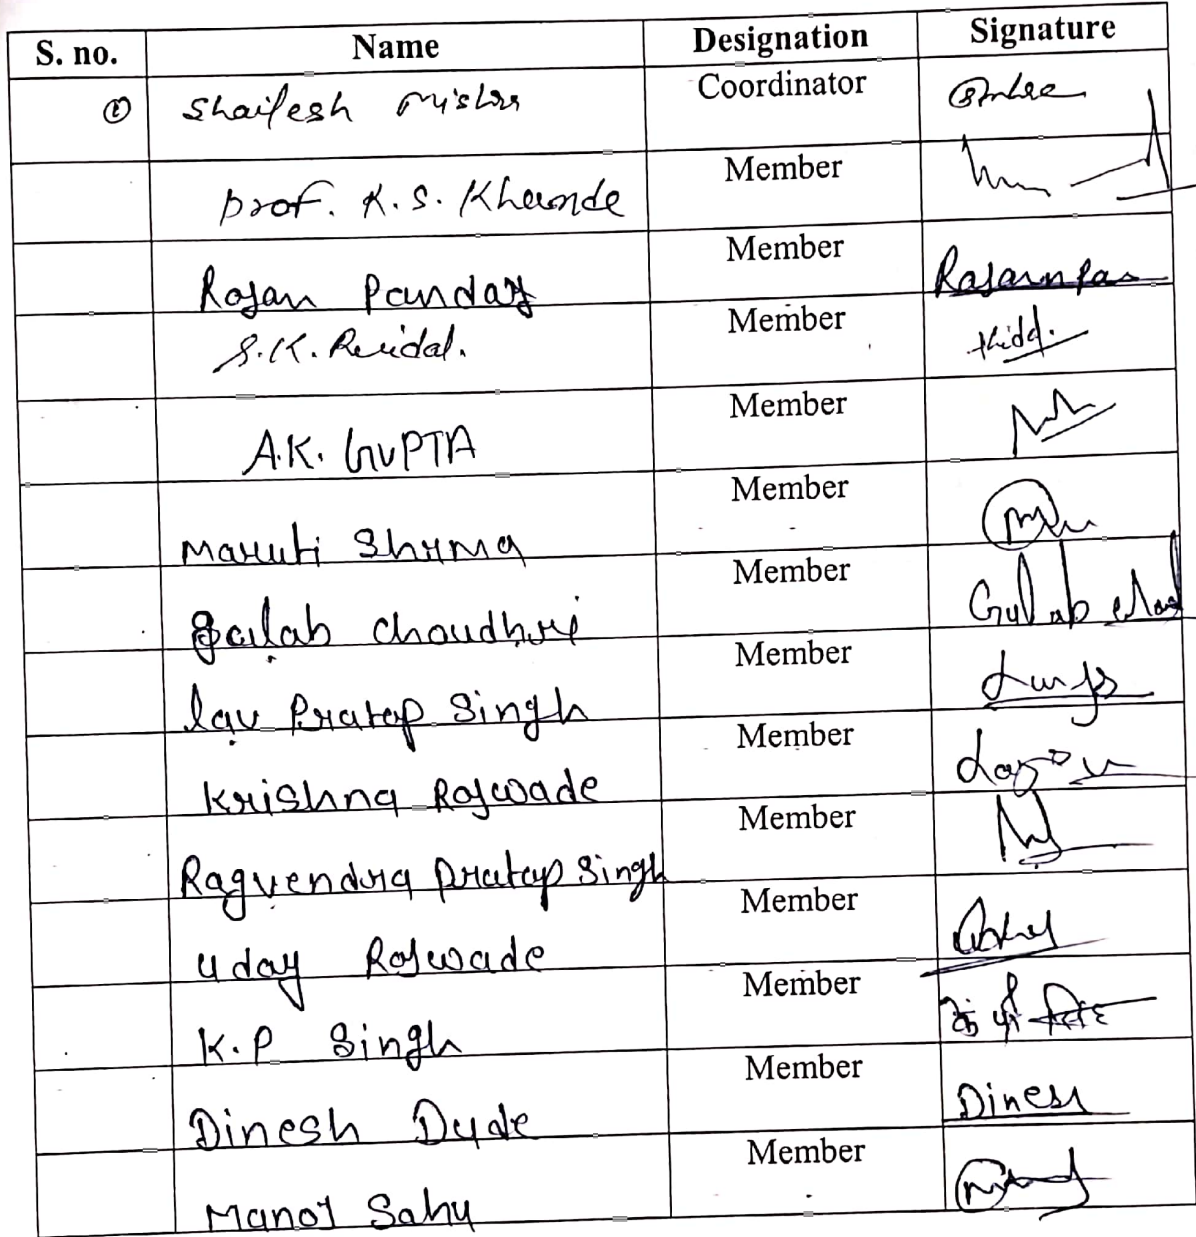 S. no. Name Designation Signature
① Shailesh Mishra Coordinator
Prof. K. S. Khairnde Member
Rajan Panday Member
S.K. Member
A.K. GUPTA Member
Maruti Shrma Member
gulab choudhri Member Gulab
lav Pratap Singh Member
Krishna Rajwade Member
Ragvendra pratap Singh Member
Uday Rajwade Member
K.P Singh Member के पी सिंह
Dinesh Dude Member Dinesh
Manoj Sahu Member